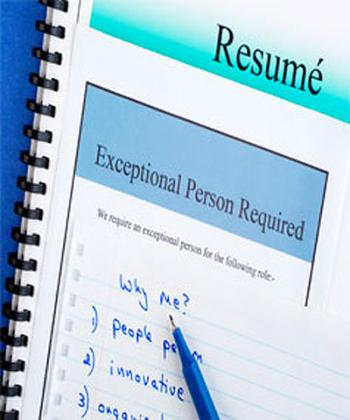 Resumé
Exceptional Person Required
We require an exceptional person for the following role:-
Why me?
1) people
2) innovative
3)